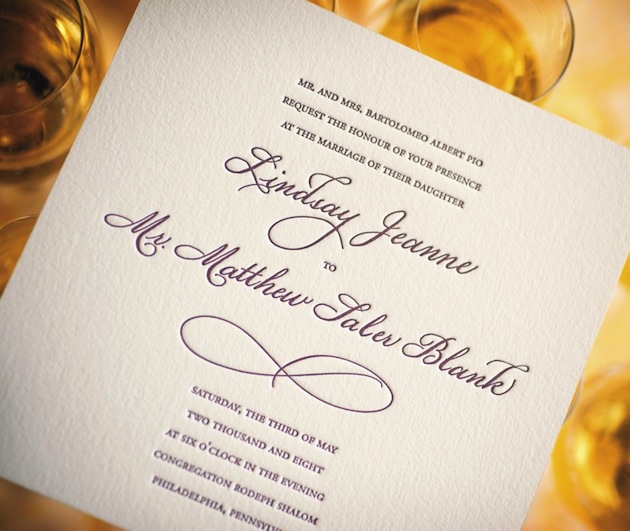 MR. AND MRS. BARTOLOMEO ALBERT PIO
REQUEST THE HONOUR OF YOUR PRESENCE
AT THE MARRIAGE OF THEIR DAUGHTER
Lindsay Jeanne
TO
Mr. Matthew Saler Blank
SATURDAY, THE THIRD OF MAY
TWO THOUSAND AND EIGHT
AT SIX O'CLOCK IN THE EVENING
CONGREGATION RODEPH SHALOM
PHILADELPHIA, PENNSYLV